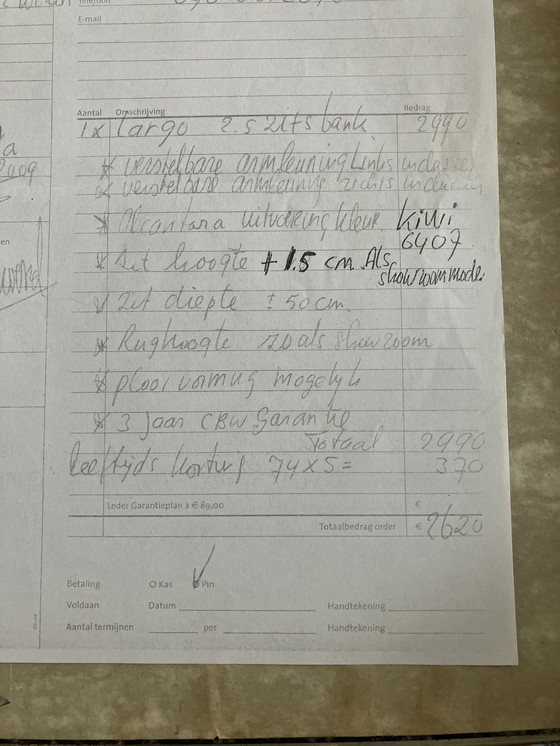 Telefoon
E-mail
Aantal Omschrijving Bedrag
1x Largo 2.5 zits bank 2990
* verstelbare armleuning Links
* verstelbare armleuning rechts
* Alcantara uitvoering kleur Kiwi
6407
* Zit hoogte + 1.5 cm. Als
showroommodel
Zit diepte ± 50 cm.
* Rughoogte zoals showroom
* plooivorming mogelijk
* 3 Jaar CBW Garantie
Totaal 2990
leeftijds korting 74x5= 370
Leder Garantieplan à € 89,00 €
Totaalbedrag order € 2620
Betaling O Kas Pin
Voldaan Datum Handtekening
Aantal termijnen per Handtekening